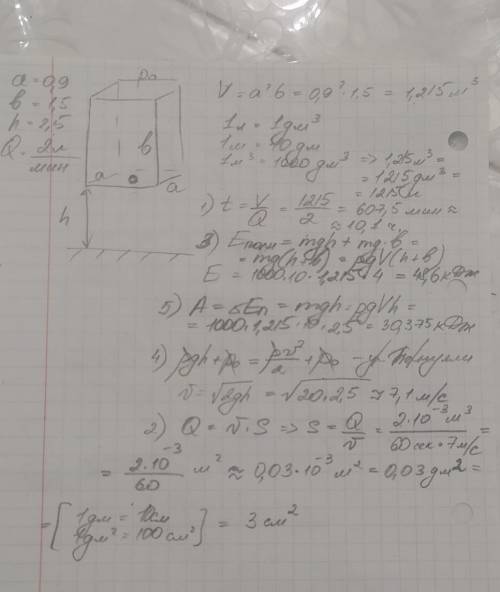 a = 0,9
b = 1,5
h = 2,5
Q = 2л/мин
p₀
b
a
a
h
V = a²b = 0,9²·1,5 = 1,215 м³
1л = 1дм³
1м = 10дм
1м³ = 1000 дм³ => 1,215м³ =
= 1215дм³ =
= 1215л
1) t = V/Q = 1215/2 = 607,5 мин ≈
≈ 10,1 ч.
3) Eполн = mgh + mg·b =
= mg(h+b) = ρgV(h+b)
E = 1000·10·1,215·4 = 48,6 кДж
5) A = ΔEп = mgh = ρgVh =
= 1000·1,215·10·2,5 = 30,375 кДж
4) ρgh + p₀ = ρv²/2 + p₀ – ур. Бернулли
v = √2gh = √20·2,5 ≈ 7,1 м/с
2) Q = v·S => S = Q/v = 2·10⁻³м³/60сек·7м/с =
= 2·10⁻³/60 м² ≈ 0,03·10⁻³м² = 0,03дм² =
= [1дм = 10см
1дм² = 100см²] = 3см²